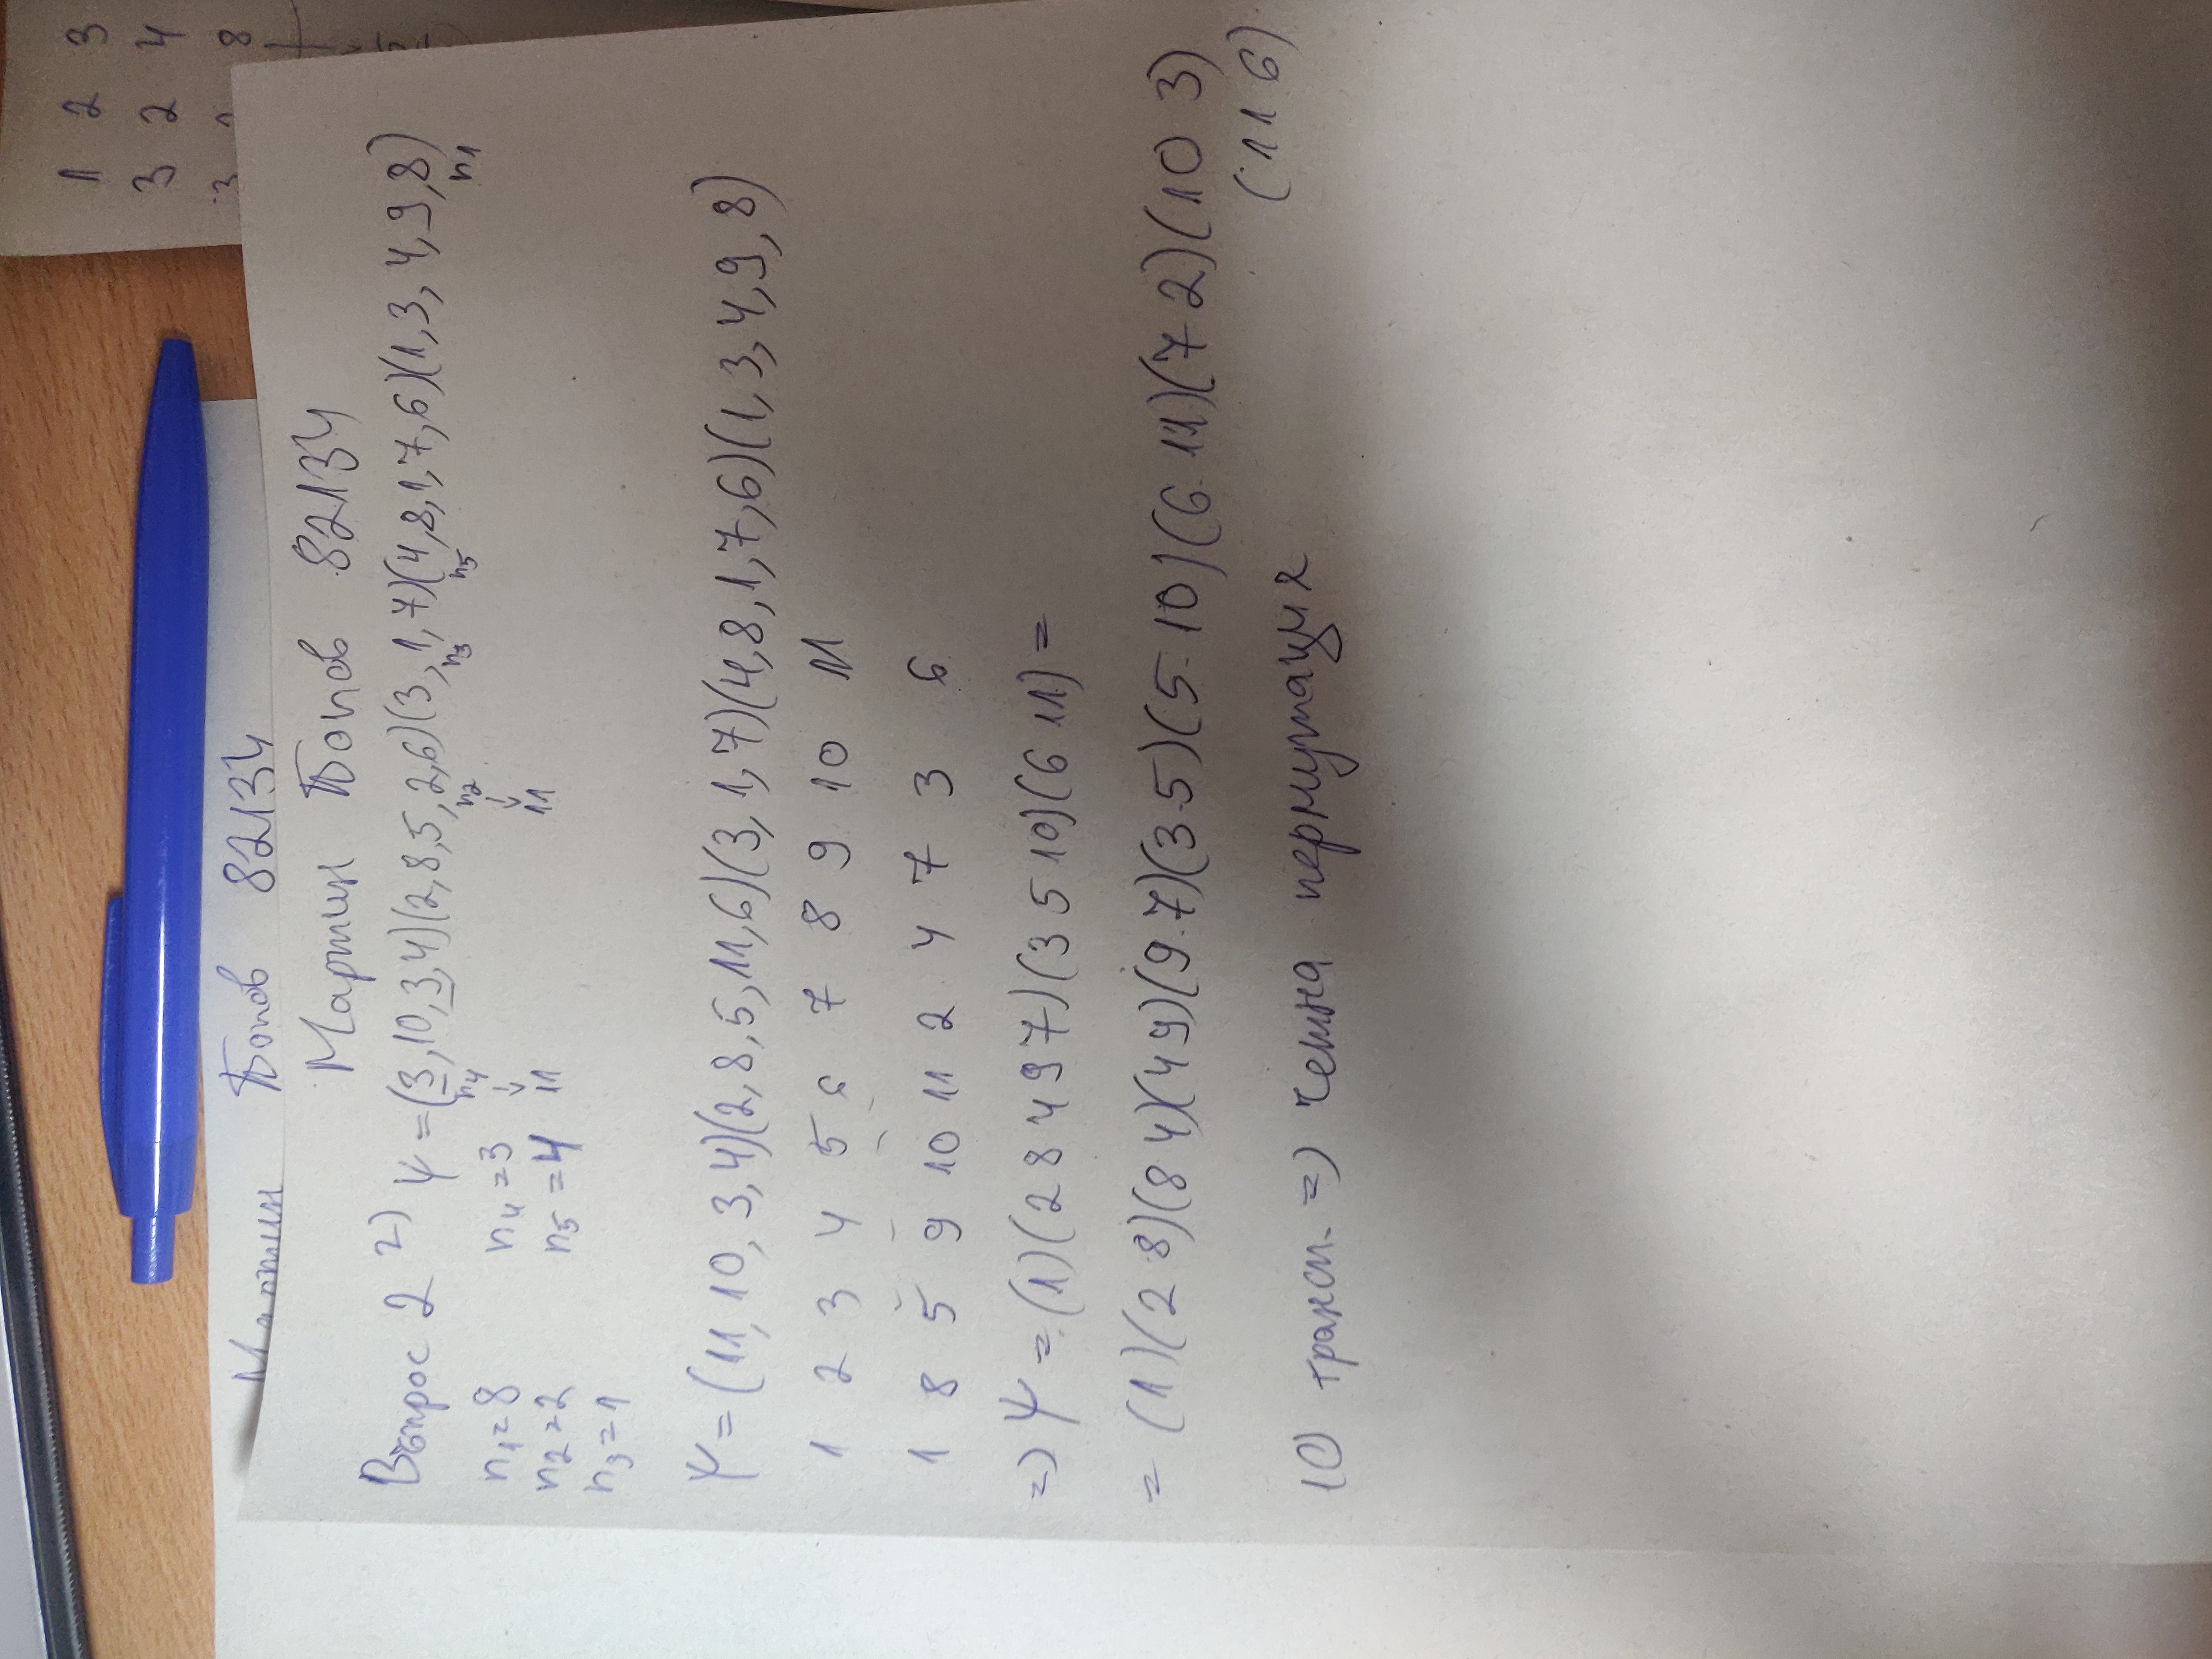 Мартин Попов 82134
Мартин Попов 82134
Въпрос 2 г) Ψ = (3,10,3,4)(2,8,5,2,6)(3,1,7)(4,8,1,7,6)(1,3,4,9,8)
n4 n2 n3 n5 n1
n1=8 n4=3 ↓ ↓
n2=2 n5=4 11 11
n3=1
Ψ = (11,10,3,4)(2,8,5,11,6)(3,1,7)(4,8,1,7,6)(1,3,4,9,8)
1 2 3 4 5 6 7 8 9 10 11
1 8 5 9 10 11 2 4 7 3 6
=> Ψ = (1)(2 8 4 9 7)(3 5 10)(6 11) =
= (1)(2 8)(8 4)(4 9)(9 7)(3 5)(5 10)(6 11)(7 2)(10 3)
(11 6)
10 трансп. => четна пермутация
1 2 3
3 2 4
8